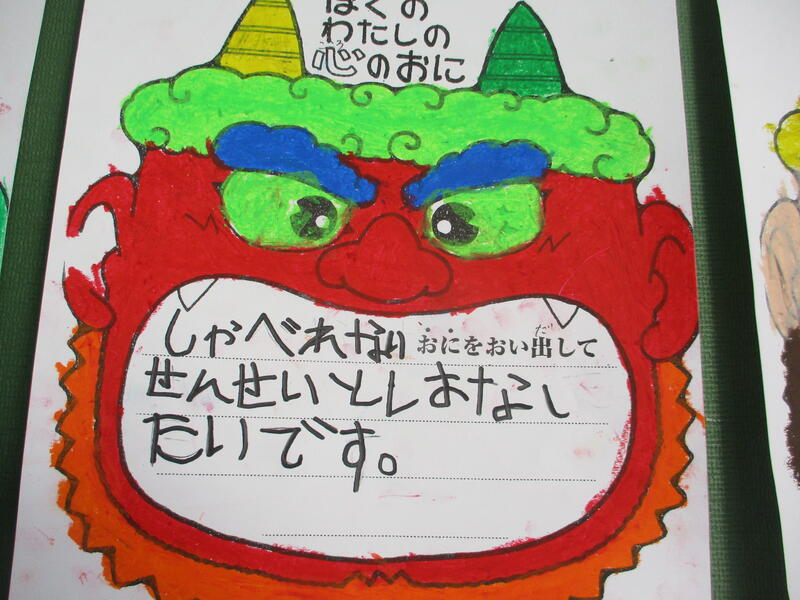 ぼくの
わたしの
心のおに
しゃべれない おにをおい出して
せんせいとしおなし
たいです。